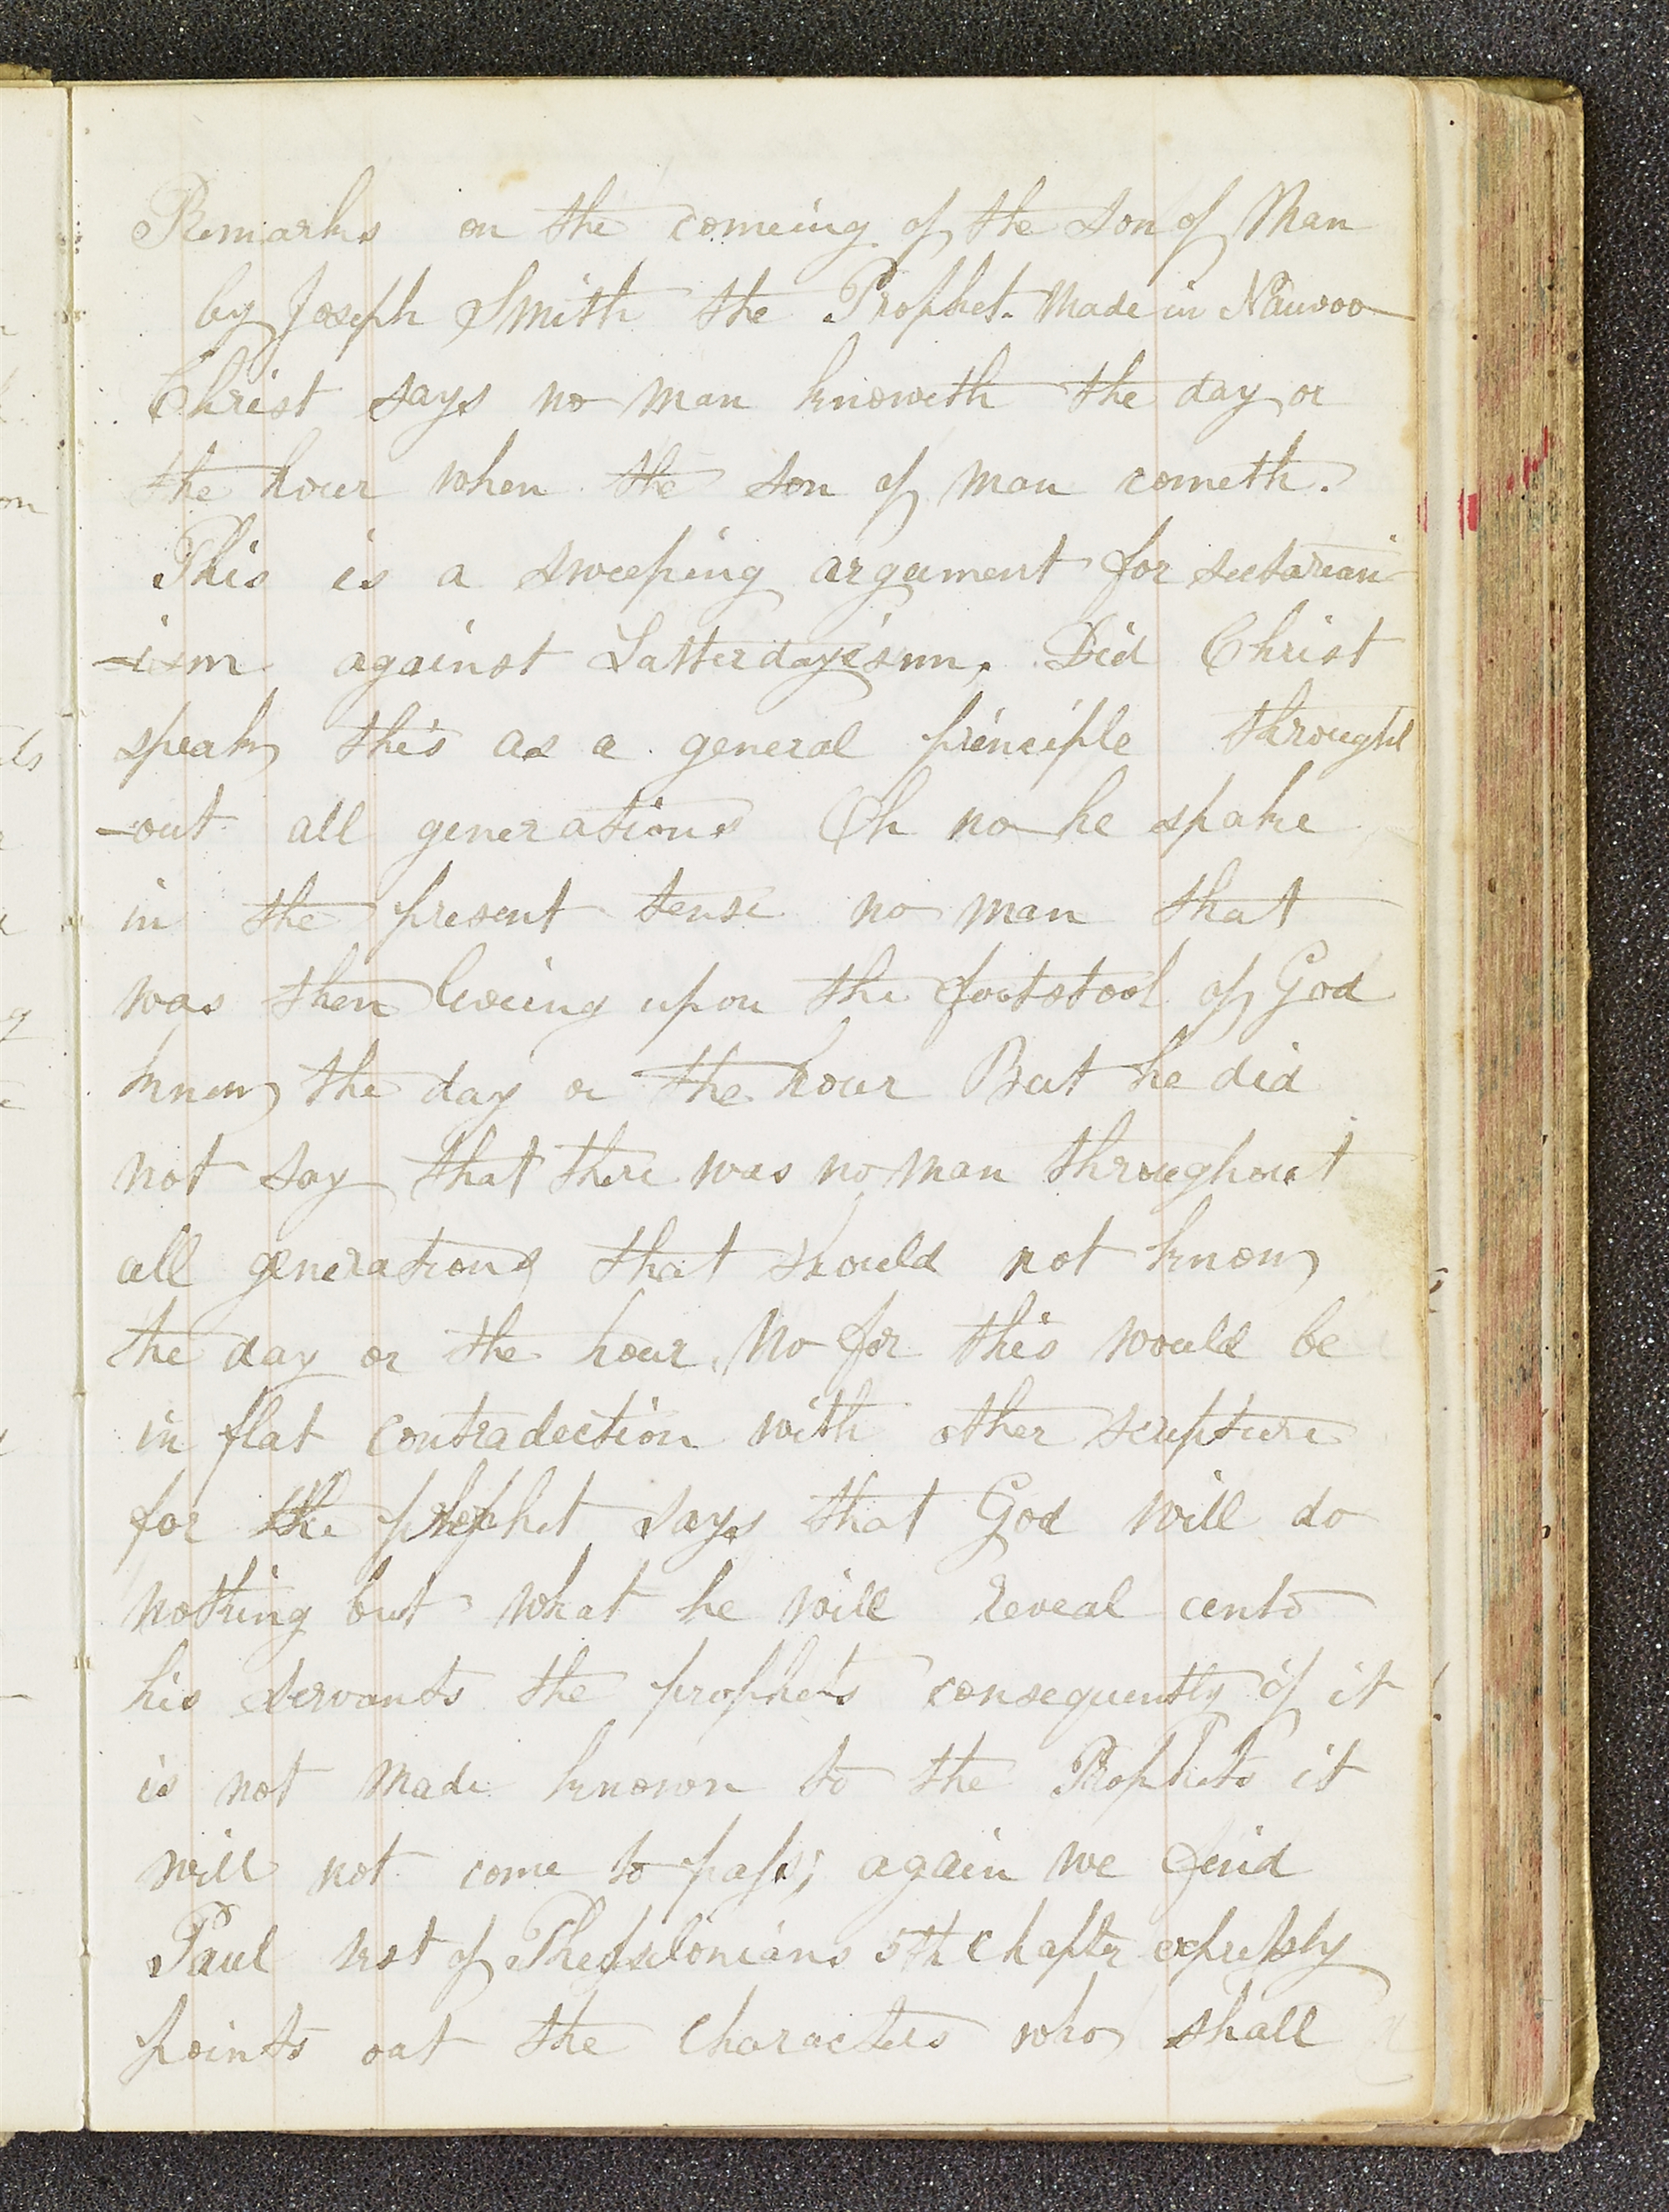 Remarks on the comeing of the Son of Man
by Joseph Smith the Prophet. Made in Nauvoo
Christ says no man knoweth the day or
the hour when the Son of man cometh.
This is a sweeping argument for sectarian
-ism against Latterdayism. Did Christ
speak this as a general principle through
-out all generations Oh no he spake
in the present tense no man that
was then liveing upon the footstool of God
knew the day or the hour But he did
not say that there was no man throughout
all generations that should not know
the day or the hour. No for this would be
in flat contradiction with other scripture
for the prophet says that God will do
nothing but what he will reveal unto
his Servants the prophets consequently if it
is not made known to the Prophets it
will not come to pass; again we find
Paul 1st of Thesselonians 5th Chapter expressly
points out the Characters who shall